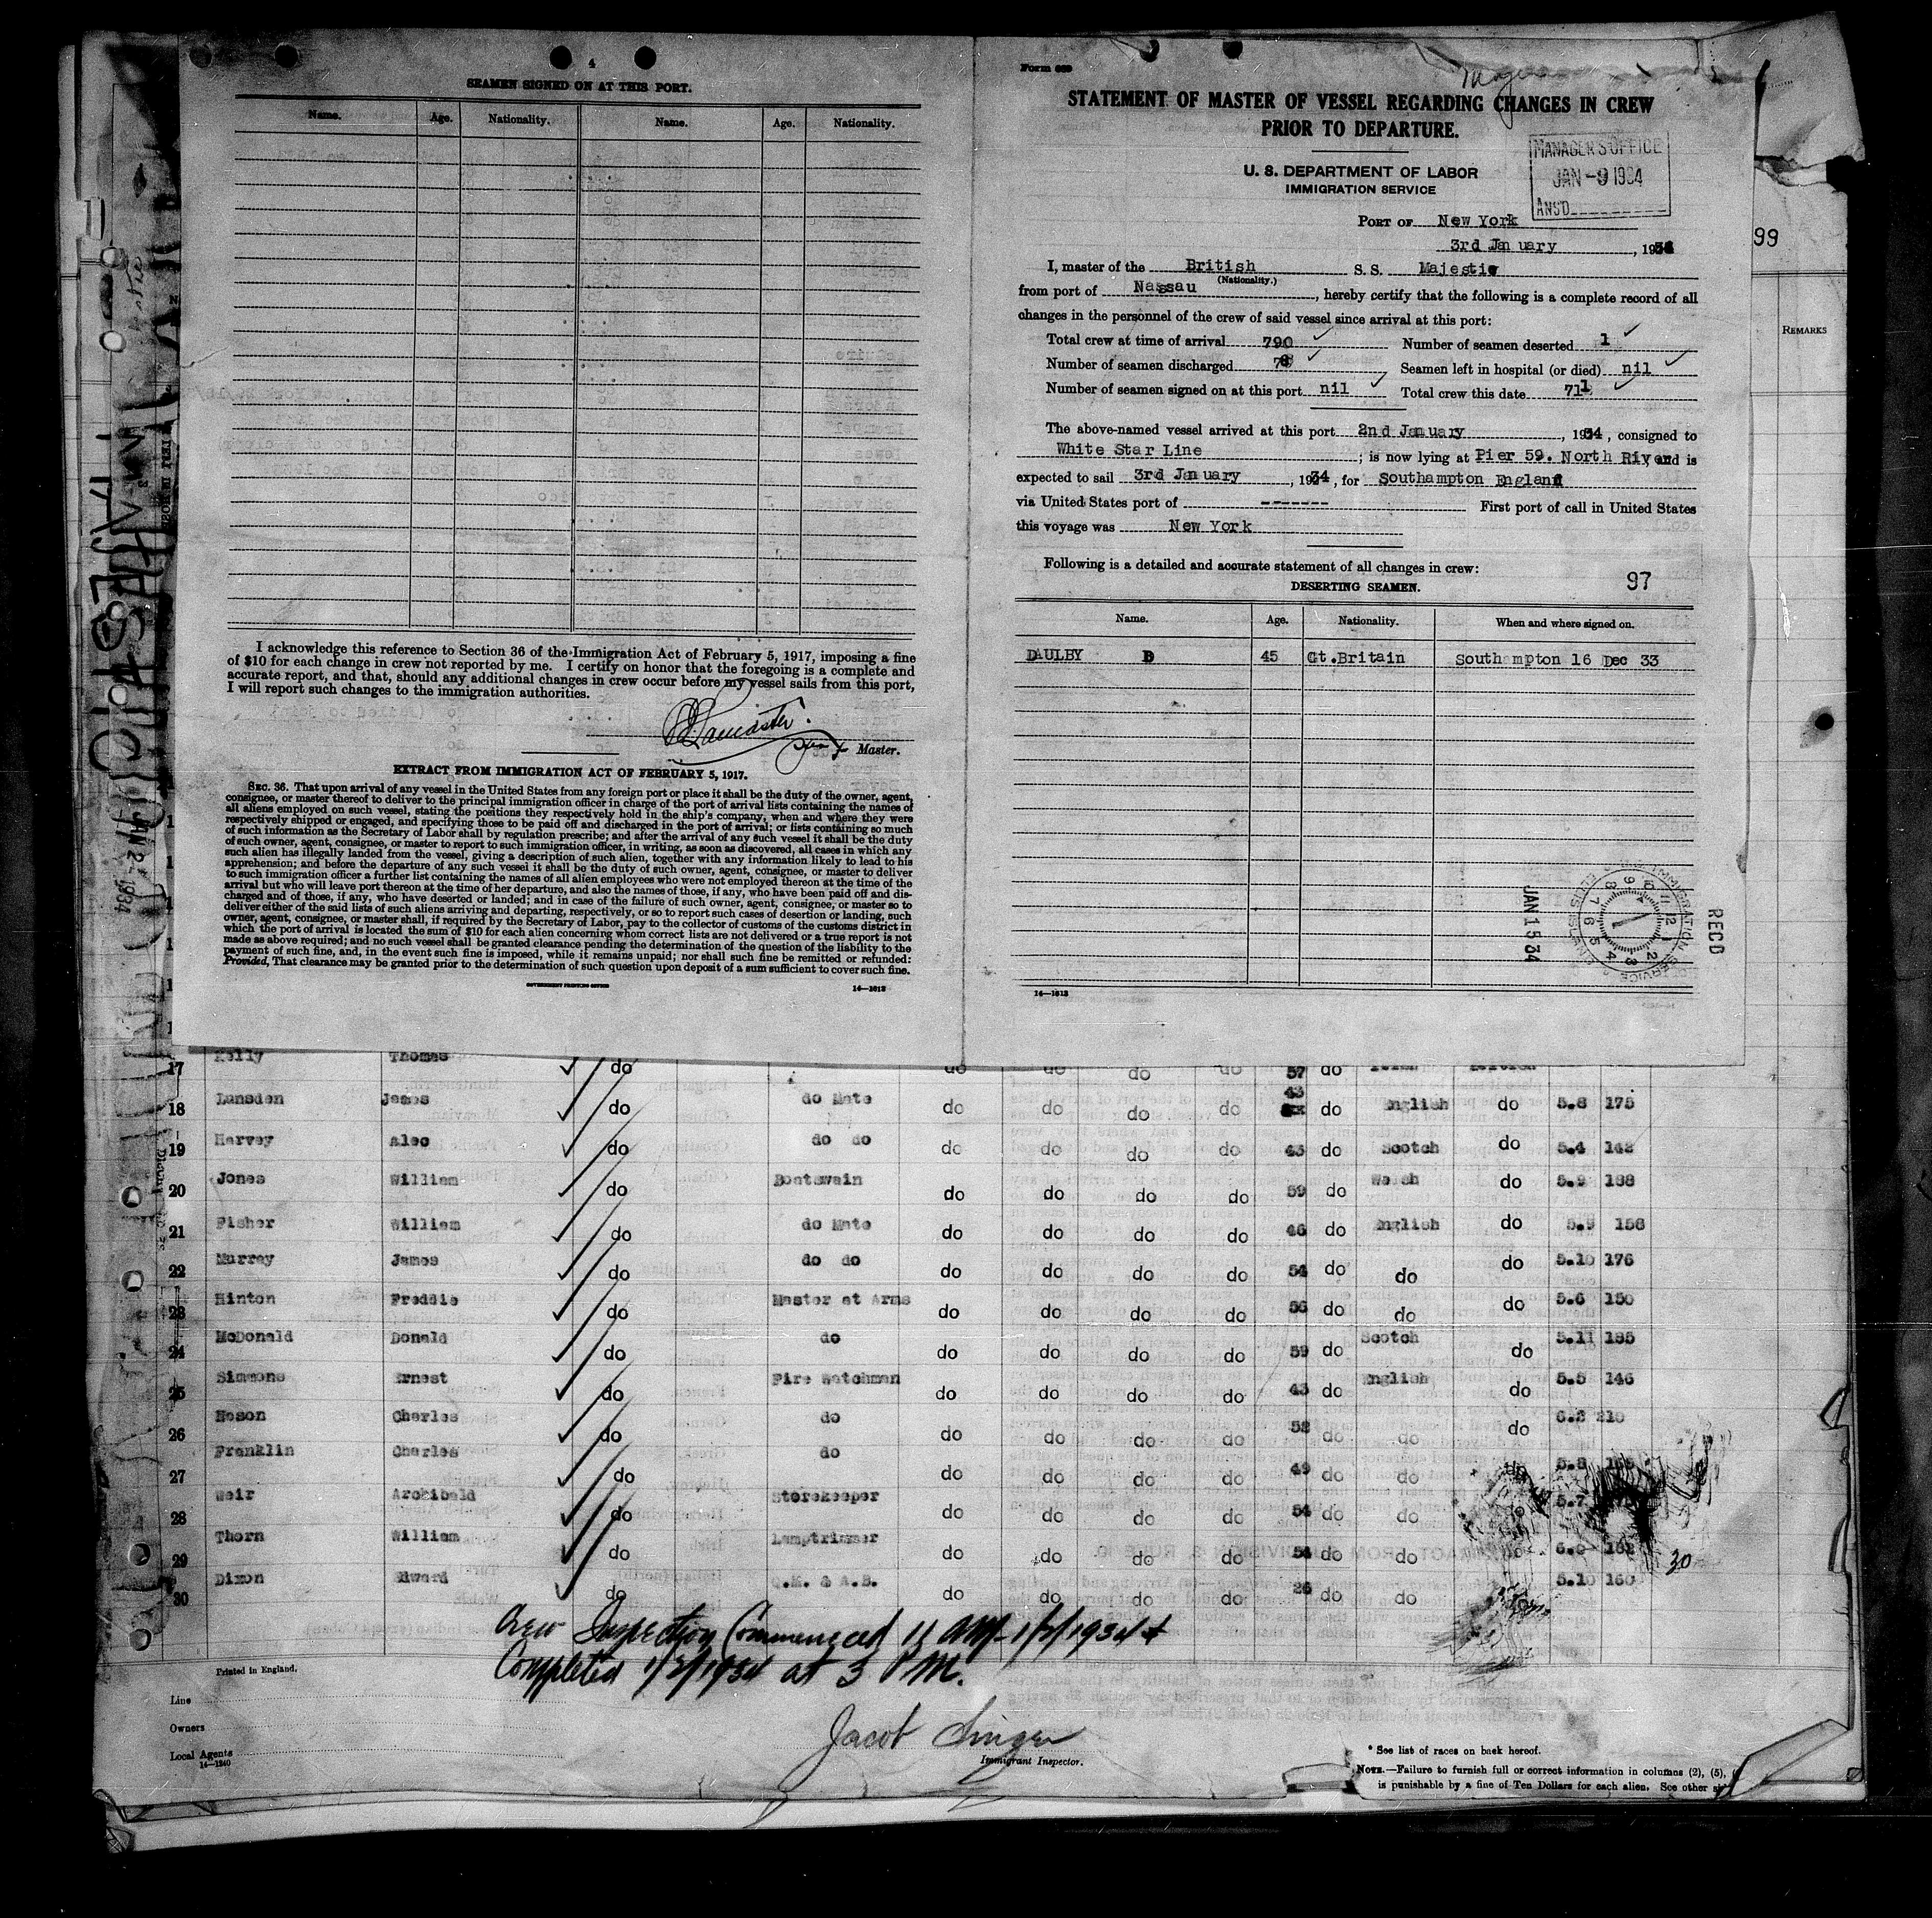 4
SEAMEN SIGNED ON AT THIS PORT.
Name. Age. Nationality. Name. Age. Nationality.
I acknowledge this reference to Section 36 of the Immigration Act of February 5, 1917, imposing a fine
of $10 for each change in crew not reported by me. I certify on honor that the foregoing is a complete and
accurate report, and that, should any additional changes in crew occur before my vessel sails from this port,
I will report such changes to the immigration authorities.
Lancaster
Master.
EXTRACT FROM IMMIGRATION ACT OF FEBRUARY 5, 1917.
SEC. 36. That upon arrival of any vessel in the United States from any foreign port or place it shall be the duty of the owner, agent,
consignee, or master thereof to deliver to the principal immigration officer in charge of the port of arrival lists containing the names of
all aliens employed on such vessel, stating the positions they respectively hold in the ship's company, when and where they were
respectively shipped or engaged, and specifying those to be paid off and discharged in the port of arrival; or lists containing so much
of such information as the Secretary of Labor shall by regulation prescribe; and after the arrival of any such vessel it shall be the duty
of such owner, agent, consignee, or master to report to such immigration officer, in writing, as soon as discovered, all cases in which any
such alien has illegally landed from the vessel, giving a description of such alien, together with any information likely to lead to his
apprehension; and before the departure of any such vessel it shall be the duty of such owner, agent, consignee, or master to deliver
to such immigration officer a further list containing the names of all alien employees who were not employed thereon at the time of the
arrival but who will leave port thereon at the time of her departure, and also the names of those, if any, who have been paid off and dis-
charged and of those, if any, who have deserted or landed; and in case of the failure of such owner, agent, consignee, or master so to
deliver either of the said lists of such aliens arriving and departing, respectively, or so to report such cases of desertion or landing, such
owner, agent, consignee, or master shall, if required by the Secretary of Labor, pay to the collector of customs of the customs district in
which the port of arrival is located the sum of $10 for each alien concerning whom correct lists are not delivered or a true report is not
made as above required; and no such vessel shall be granted clearance pending the determination of the question of the liability to the
payment of such fine, and, in the event such fine is imposed, while it remains unpaid; nor shall such fine be remitted or refunded:
Provided, That clearance may be granted prior to the determination of such question upon deposit of a sum sufficient to cover such fine.
GOVERNMENT PRINTING OFFICE 14—1613
Form 689
STATEMENT OF MASTER OF VESSEL REGARDING CHANGES IN CREW
PRIOR TO DEPARTURE.
U. S. DEPARTMENT OF LABOR
IMMIGRATION SERVICE
MANAGER'S OFFICE
JAN -9 1934
ANS'D
PORT OF New York
3rd Jan uary, 1934
I, master of the British S. S. Majestic
(Nationality.)
from port of Nassau, hereby certify that the following is a complete record of all
changes in the personnel of the crew of said vessel since arrival at this port:
Total crew at time of arrival 790 Number of seamen deserted 1
Number of seamen discharged 78 Seamen left in hospital (or died) nil
Number of seamen signed on at this port nil Total crew this date 711
The above-named vessel arrived at this port 2nd January, 1934, consigned to
White Star Line; is now lying at Pier 59. North River and is
expected to sail 3rd January, 1934, for Southampton England
via United States port of ------- First port of call in United States
this voyage was New York
Following is a detailed and accurate statement of all changes in crew:
DESERTING SEAMEN. 97
Name. Age. Nationality. When and where signed on.
DAULBY D 45 Gt.Britain Southampton 16 Dec 33
RECD
JAN 15 34
IMMIGRATION SERVICE
14—1613
99
REMARKS
JAN 2 - 1934
17 Kelly Thomas do do do do do 57 do
18 Lunsden James do do Mate do do do do 43 do English do 5.8 175
19 Harvey Alec do do do do do do do 43 do Scotch do 5.4 142
20 Jones William do Boatswain do do do do 59 do Welsh do 5.9 188
21 Fisher William do do Mate do do do do 46 do English do 5.9 158
22 Murray James do do do do do do do 54 do do do 5.10 176
23 Hinton Freddie do Master at Arms do do do do 56 do do do 5.6 150
24 McDonald Donald do do do do do do 59 do Scotch do 5.11 185
25 Simmons Ernest do Fire Watchman do do do do 43 do English do 5.5 146
26 Mason Charles do do do do do do 52 do do do 6.2 210
27 Franklin Charles do do do do do do 49 do do 5.8
28 Weir Archibald do Storekeeper do do do do 54 do do 5.7
29 Thorn William do Lamptrimmer do do do do 54 do do 6.0 182
30 Dixon Edward do Q.M. & A.B. do do do do 26 do do do 5.10 160
30
Crew Inspection Commenced 11 AM - 1/2/1934 +
Completed 1/2/1934 at 3 PM.
Printed in England.
Line
Owners
Local Agents
14—1240
Jacob Singer
Immigrant Inspector.
* See list of races on back hereof.
NOTE.—Failure to furnish full or correct information in columns (2), (5),
is punishable by a fine of Ten Dollars for each alien. See other